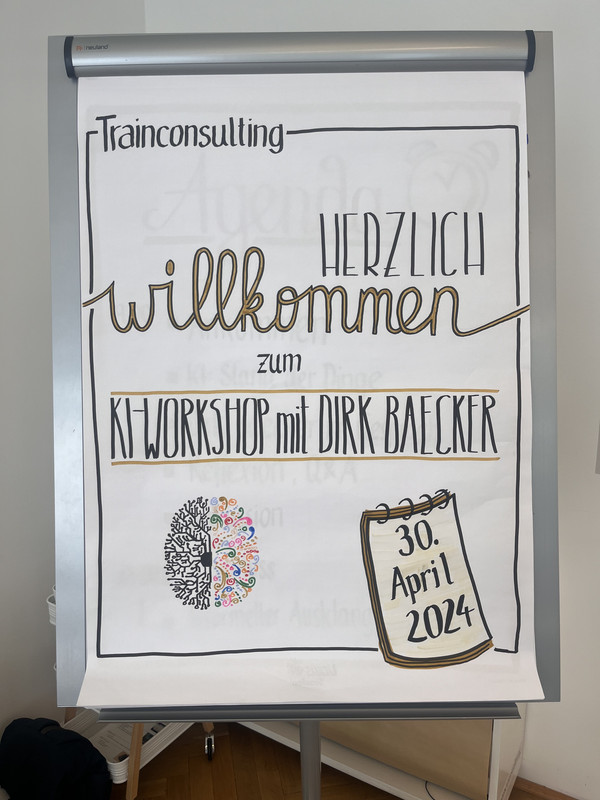 neuland
Trainconsulting
HERZLICH
willkommen
zum
KI-WORKSHOP mit DIRK BAECKER
30.
April
2024
Agenda
Ankommen
Reflexion, Q&A